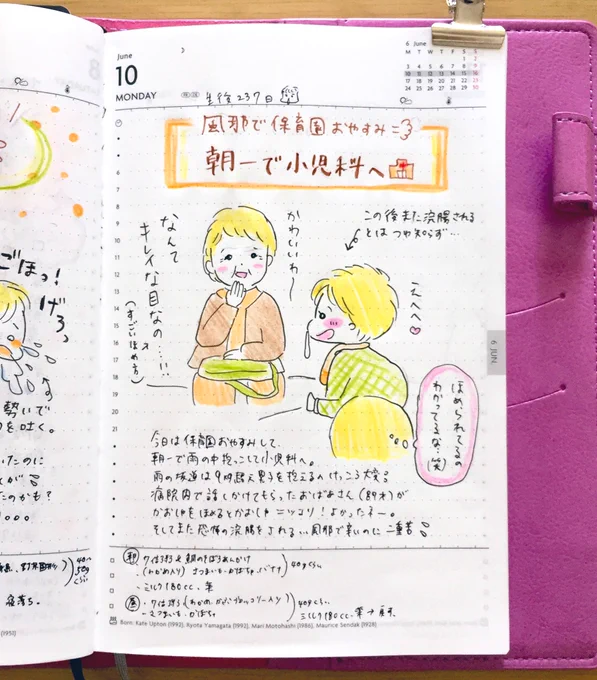 June
10
MONDAY
生後237日
6 June
M T W T F S S
1 2
3 4 5 6 7 8 9
10 11 12 13 14 15 16
17 18 19 20 21 22 23
24 25 26 27 28 29 30
風邪で保育園おやすみ
朝一で小児科へ
この後また浣腸される
とはつゆ知らず…
かわいいわ〜
なんて
キレイな目なの…!!
(すごいほめ方)
えへへ♡
ほめられてるの
わかってるな…(笑)
6 JUN
7
8
9
10
11
12
13
14
15
16
17
18
19
20
21
ごほっ!
げろっ
勢いで
を吐く。
今日は保育園おやすみして、
朝一で雨の中抱っこして小児科へ。
雨の坂道は9kg超え男子を抱えるへけっこう大変
病院内で話しかけてもらったおばあさん(89才)が
かおじゅをほめるとかおじゅニッコリ!よかったネー。
そしてまた恐怖の浣腸をされる…風邪で辛いのに二重苦
朝
(わかめ入り) さつまいも・かぼちゃ・バナナ
40gくらい
・ミルク180cc、薬
昼
・さつまいも・かぼちゃ
40gくらい
ミルク180cc
Born: Kate Upton (1992), Ryota Yamagata (1992), Mari Motohashi (1986), Maurice Sendak (1928)